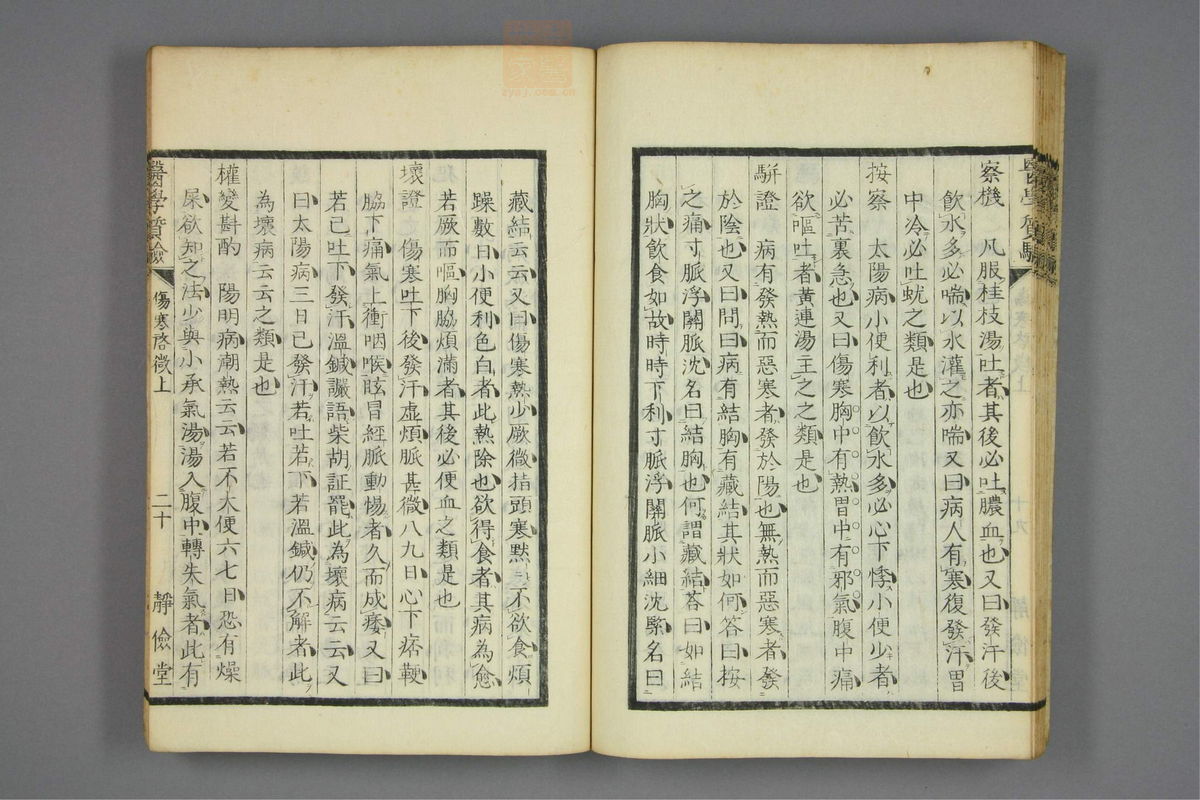 察機　凡服桂枝湯吐者其後必吐膿血也又曰發汗後
飲水多必喘以水灌之亦喘又曰病人有寒復發汗胃
中冷必吐蚘之類是也
按察　太陽病小便利者以飲水多必心下悸小便少者
必苦裏急也又曰傷寒胸中有熱胃中有邪氣腹中痛
欲嘔吐者黃連湯主之之類是也
駢證　病有發熱而惡寒者發於陽也無熱而惡寒者發
於陰也又曰問曰病有結胸有藏結其狀如何答曰按
之痛寸脈浮關脈沈名曰結胸也何謂藏結荅曰如結
胸狀飲食如故時時下利寸脈浮關脈小細沈緊名曰
藏結云云又曰傷寒熱少厥微指頭寒默々不欲食煩
躁數日小便利色白者此熱除也欲得食者其病為愈
若厥而嘔胸脇煩滿者其後必便血之類是也
壞證　傷寒吐下後發汗虛煩脈甚微八九日心下痞鞕
脇下痛氣上衝咽喉眩冒經脈動惕者久而成痿又曰
若已吐下發汗溫鍼讝語柴胡証罷此為壞病云云又
曰太陽病三日已發汗若吐若下若溫鍼仍不解者此
為壞病云云之類是也
權變斟酌　陽明病潮熱云云若不大便六七日恐有燥
屎欲知之法少與小承氣湯湯入腹中轉失氣者此有
醫學質驗
傷寒啓微上
二十
靜儉堂